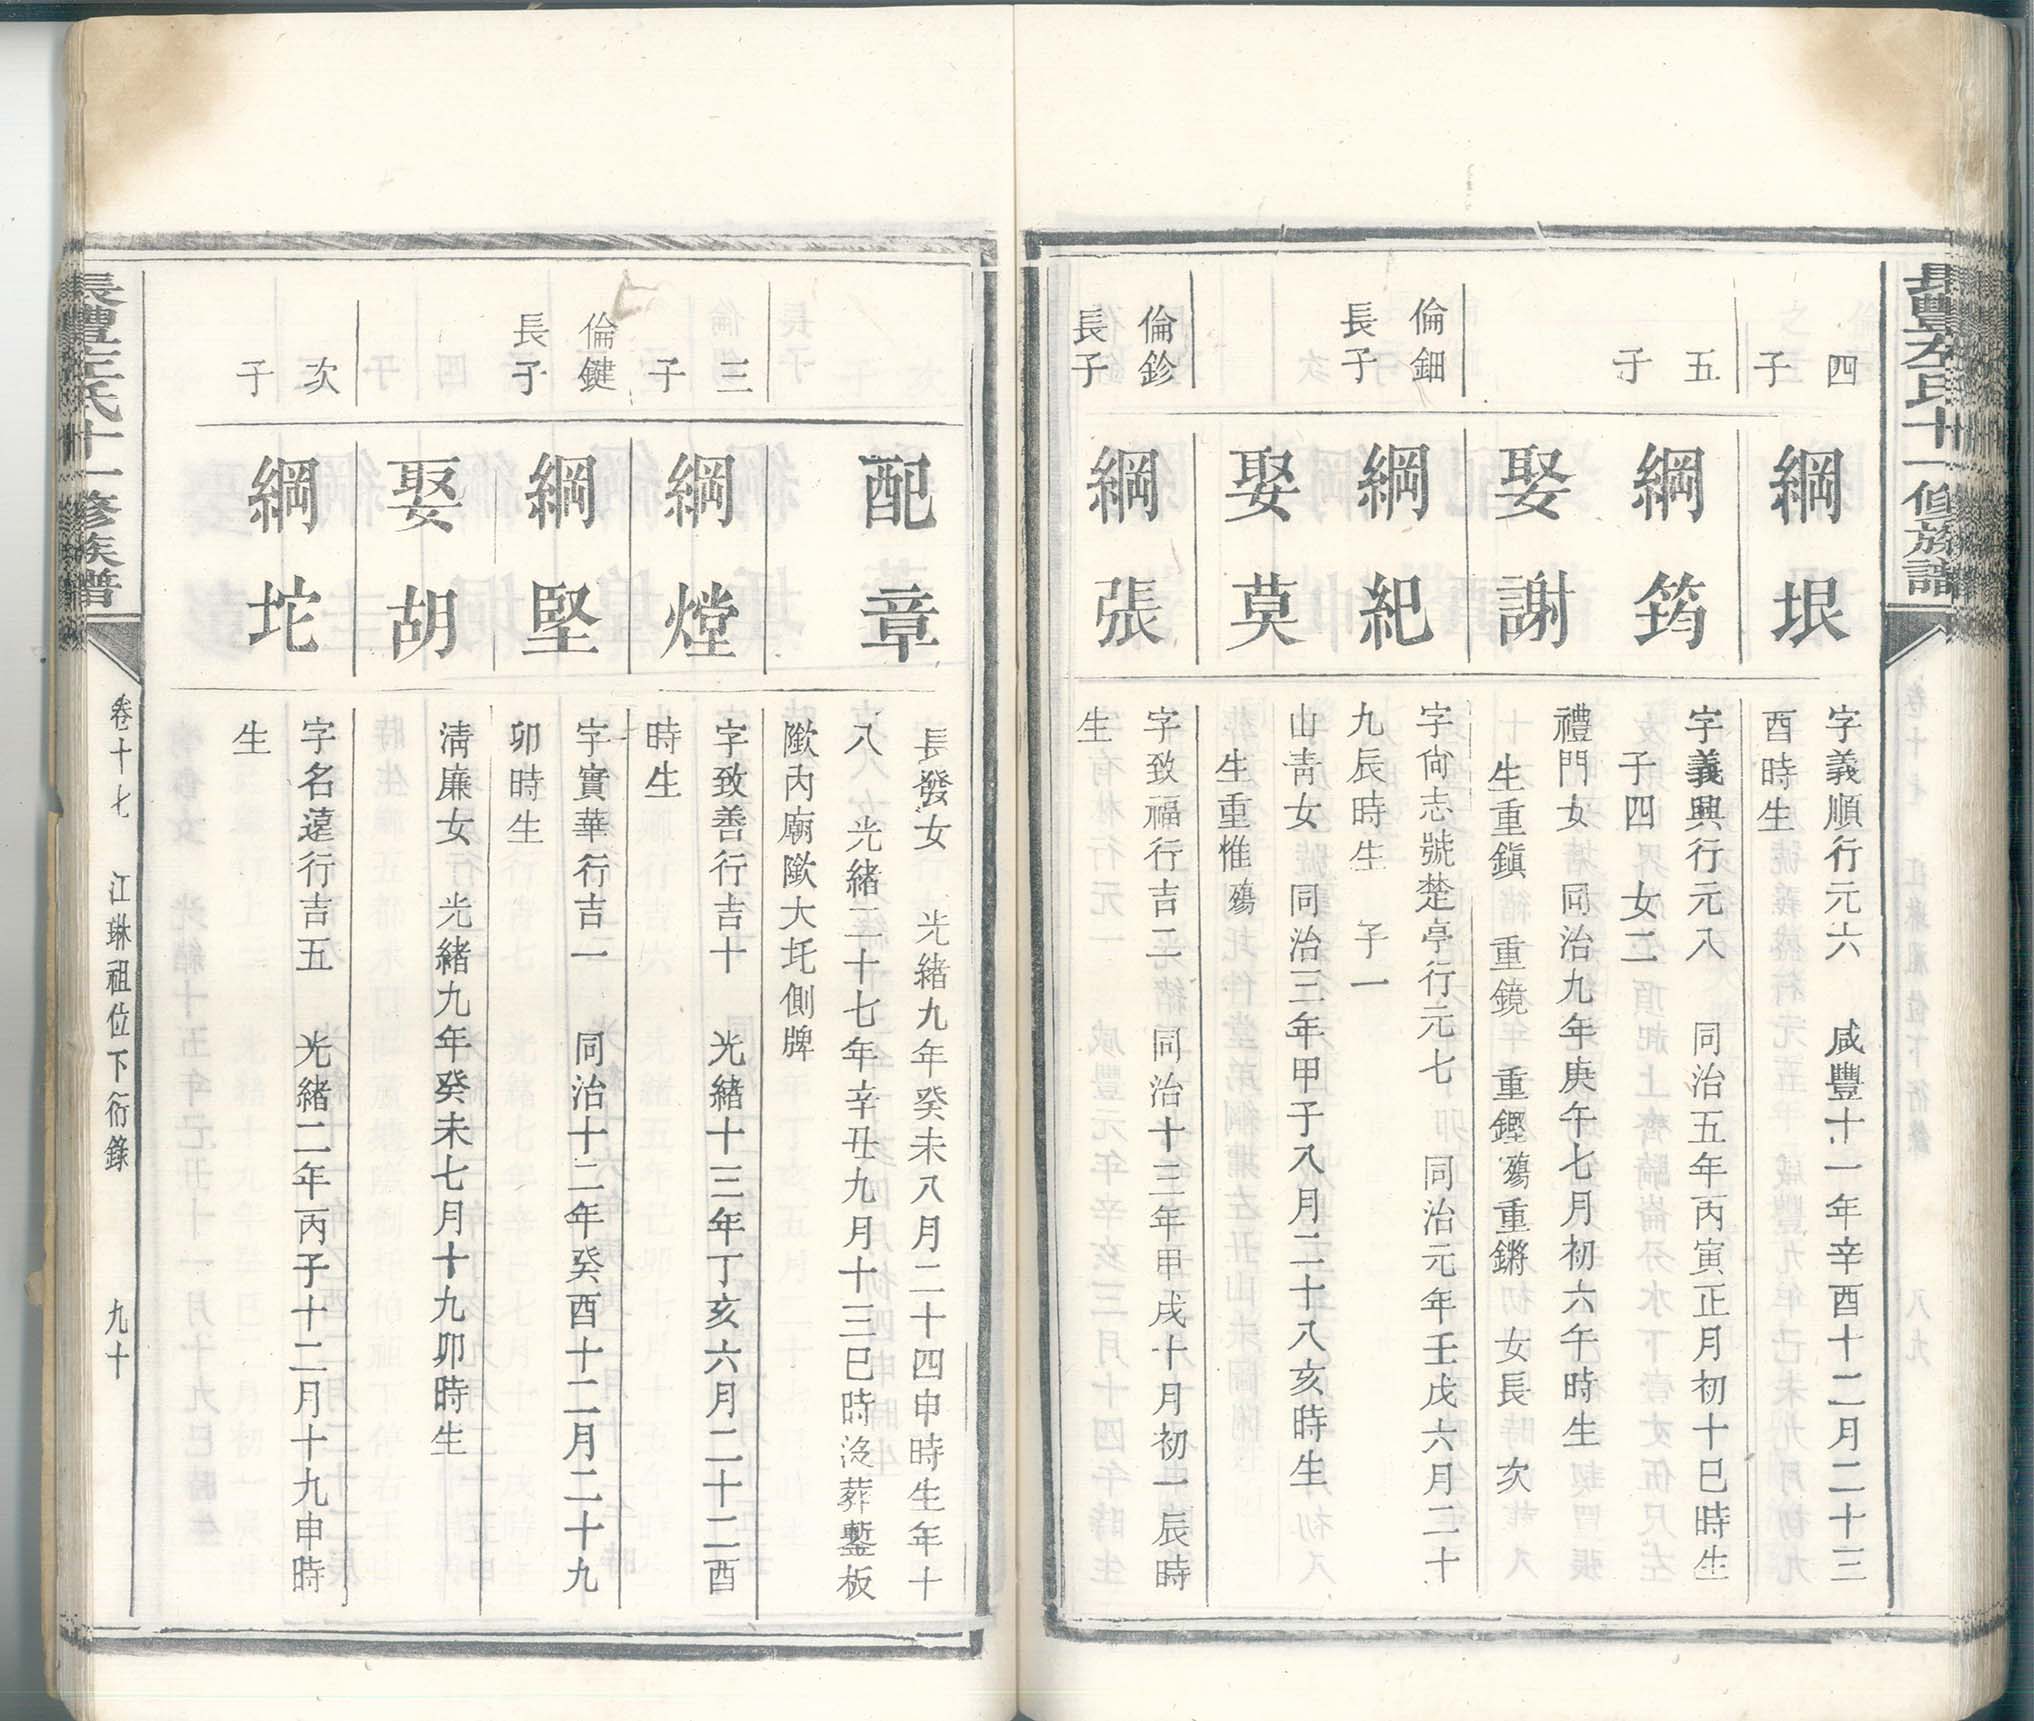 長豐左氏十一修族譜
四
子
綱垠
字義順行元六 咸豐十一年辛酉十二月二十三
酉時生
五
子
綱筠
字義興行元八 同治五年丙寅正月初十巳時生
子四 女二
娶謝
禮門女 同治九年庚午七月初六午時生
生重鎭 重鏡 重鏗殤重鏘 女長 次
倫鈿
長子
綱紀
字尙志號楚亭行元七 同治元年壬戌六月二十
九辰時生 子一
娶莫
山靑女 同治三年甲子八月二十八亥時生
生重惟殤
倫鉁
長子
綱張
字致福行吉二 同治十三年甲戌十月初一辰時
生
配章
長發女 光緒九年癸未八月二十四申時生年十
八 光緒二十七年辛丑九月十三巳時沒葬鏨板
歘內廟歘大圫側牌
三
子
綱爣
字致善行吉十 光緒十三年丁亥六月二十二酉
時生
倫鍵
長子
綱堅
字實華行吉一 同治十二年癸酉十二月二十九
卯時生
娶胡
淸廉女 光緒九年癸未七月十九卯時生
次
子
綱坨
字名遠行吉五 光緒二年丙子十二月十九申時
生
長豐左氏十一修族譜
卷十七 江琳祖位下衍錄 九十